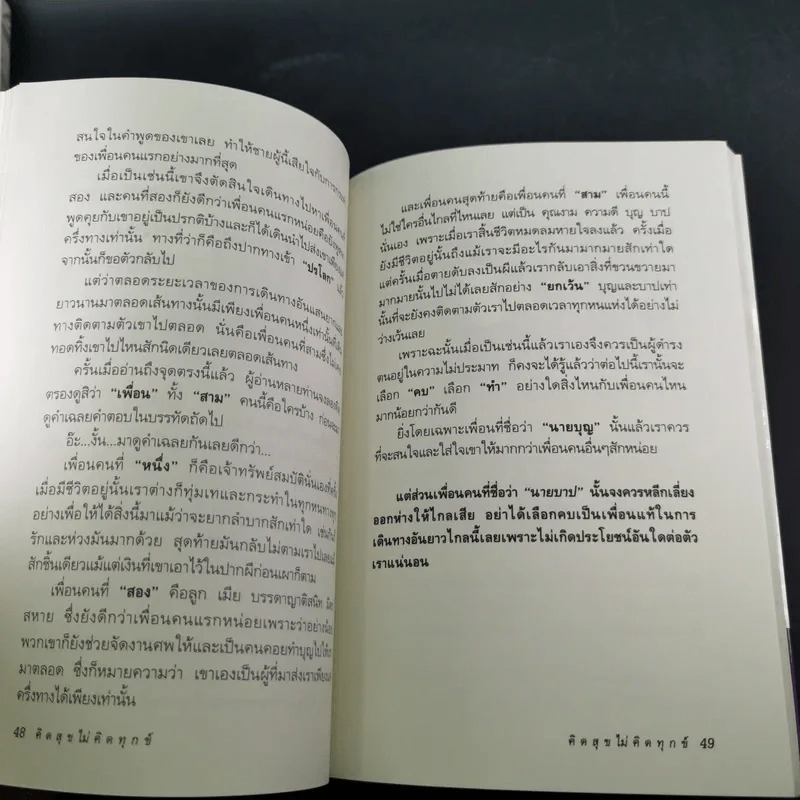 สนใจในคำพูดของเขาเลย ทำให้ชายผู้นี้เสียใจกับการ
ของเพื่อนคนแรกอย่างมากที่สุด
เมื่อเป็นเช่นนี้เขาจึงตัดสินใจเดินทางไปหาเพื่อนคนที่
สอง และคนที่สองก็ยังดีกว่าเพื่อนคนแรกหน่อยคือยัง
พูดคุยกับเขาอยู่เป็นปรกติบ้างและก็ได้เดินนำไปส่งเขาเพียง
ครึ่งทางเท่านั้น ทางที่ว่าก็คือถึงปากทางเข้า “ปรโลก” แล้ว
จากนั้นก็ขอตัวกลับไป
แต่ว่าตลอดระยะเวลาของการเดินทางอันแสน
ยาวนานมาตลอดเส้นทางนั้นมีเพียงเพื่อนคนหนึ่งเท่านั้น
ทางติดตามตัวเขาไปตลอด นั่นคือเพื่อนคนที่สามซึ่งไม่
ทอดทิ้งเขาไปไหนสักนิดเดียวเลยตลอดเส้นทาง
ครั้นเมื่ออ่านถึงจุดตรงนี้แล้ว ผู้อ่านหลายท่านจงลอง
ตรองดูสิว่า “เพื่อน” ทั้ง “สาม” คนนี้คือใครบ้าง ก่อน
ดูคำเฉลยคำตอบในบรรทัดถัดไป
อ๊ะ...งั้น...มาดูคำเฉลยกันเลยดีกว่า...
เพื่อนคนที่ “หนึ่ง” ก็คือเจ้าทรัพย์สมบัตินั่นเอง
เมื่อมีชีวิตอยู่นั้นเราต่างก็ทุ่มเทและกระทำในทุกหนทาง
อย่างเพื่อให้ได้สิ่งนี้มาแม้ว่าจะยากลำบากสักเท่าใด เช่น
รักและห่วงมันมากด้วย สุดท้ายมันกลับไม่ตามเราไปเลย
สักชิ้นเดียวแม้แต่เงินที่เขาเอาไว้ในปากผีก่อนเผาก็ตาม
เพื่อนคนที่ “สอง” คือลูก เมีย บรรดาญาติสนิท มิตร
สหาย ซึ่งยังดีกว่าเพื่อนคนแรกหน่อยเพราะว่าอย่างน้อย
พวกเขาก็ยังช่วยจัดงานศพให้และเป็นคนคอยทำบุญไปให้
มาตลอด ซึ่งก็หมายความว่า เขาเองเป็นผู้ที่มาส่งเราเพียง
ครึ่งทางได้เพียงเท่านั้น
48 คิดสุขไม่คิดทุกข์
และเพื่อนคนสุดท้ายคือเพื่อนคนที่ “สาม” เพื่อนคนนี้
ไม่ใช่ใครอื่นไกลที่ไหนเลย แต่เป็น คุณงาม ความดี บุญ บาป
นั่นเอง เพราะเมื่อเราสิ้นชีวิตหมดลมหายใจลงแล้ว ครั้งเมื่อ
ยังมีชีวิตอยู่นั้นถึงแม้เราจะมีอะไรกันมามากมายสักเท่าใด
แต่ครั้นเมื่อตายดับลงเป็นผีแล้วเรากลับเอาสิ่งที่ขวนขวายมา
มากมายนั้นไปไม่ได้เลยสักอย่าง “ยกเว้น” บุญและบาปเท่า
นั้นที่จะยังคงติดตามตัวเราไปตลอดเวลาทุกหนแห่งได้อย่างไม่
ว่างเว้นเลย
เพราะฉะนั้นเมื่อเป็นเช่นนี้แล้วเราเองจึงควรเป็นผู้ดำรง
ตนอยู่ในความไม่ประมาท ก็คงจะได้รู้แล้วว่าต่อไปนี้เรานั้นจะ
เลือก “คบ” เลือก “ทำ” อย่างใดสิ่งไหนกับเพื่อนคนไหน
มากน้อยกว่ากันดี
ยิ่งโดยเฉพาะเพื่อนที่ชื่อว่า “นายบุญ” นั้นแล้วเราควร
ที่จะสนใจและใส่ใจเขาให้มากกว่าเพื่อนคนอื่นๆสักหน่อย
แต่ส่วนเพื่อนคนที่ชื่อว่า “นายบาป” นั้นจงควรหลีกเลี่ยง
ออกห่างให้ไกลเสีย อย่าได้เลือกคบเป็นเพื่อนแท้ในการ
เดินทางอันยาวไกลนี้เลยเพราะไม่เกิดประโยชน์อันใดต่อตัว
เราแน่นอน
คิดสุขไม่คิดทุกข์ 49